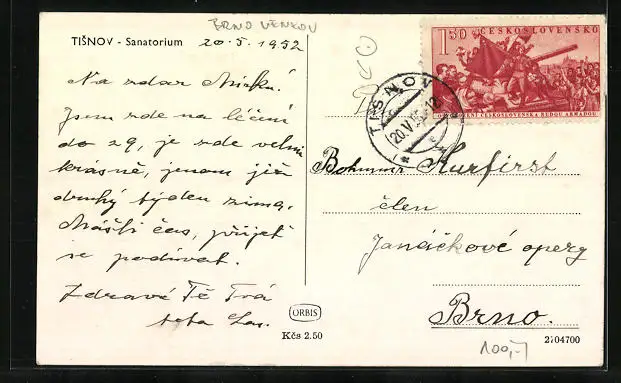 BRNO VENKOV
TIŠNOV - Sanatorium
20.5.1952
Na zdar Mirku!
Jsem zde na léčení
do 29, je zde velmi
krásně, jenom již
druhý týden zima.
Máš-li čas, přijeď
se podívat.
Zdraví Tě Tvá
teta
1.50 ČESKOSLOVENSKO
OSVOBOZENÍ ČESKOSLOVENSKA RUDOU ARMÁDOU
TIŠNOV
20.V.52-12
Bohumír Kurfirst
člen
Janáčkové opery
Brno.
ORBIS
Kčs 2.50
2704700
100,-